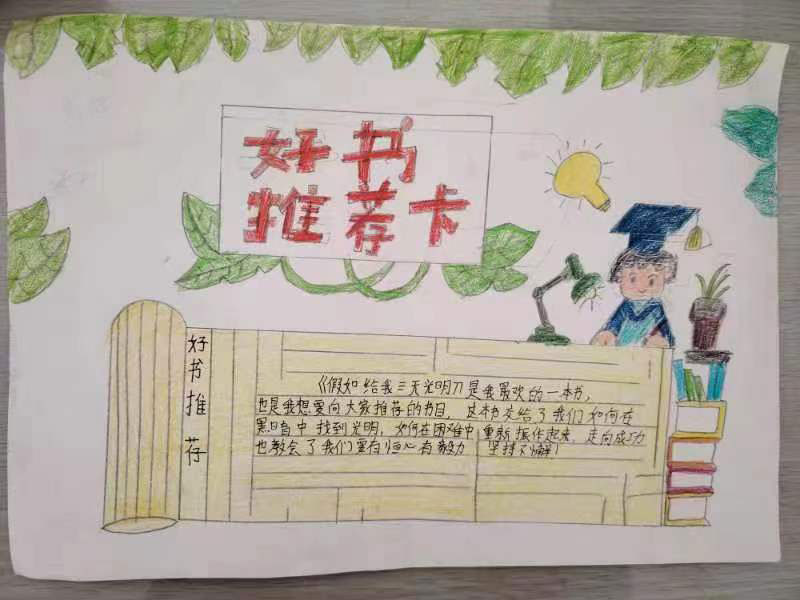 好书
推荐卡
好书推荐
《假如给我三天光明》是我最欢的一本书,
也是我想要向大家推荐的书目,这本书交给了我们如何在
黑暗中找到光明,如何在困难中重新振作起来,走向成功
也教会了我们要有恒心有毅力 坚持不懈!